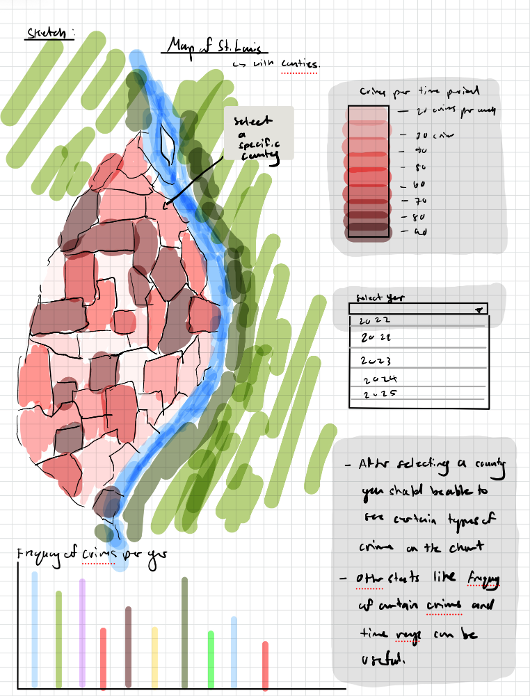 Sketch:
Map of St. Louis
↳ with counties.
Select
a
specific
county
Crimes per time period
- 20 crimes per week
- 30 crimes
- 40
- 50
- 60
- 70
- 80
- 90
Select year
2022
2023
2024
2025
- After selecting a county
you should be able to
see certain types of
crime on the chart
- Other stats like frequency
of certain crimes and
time range can be
useful.
Frequency of crimes per year